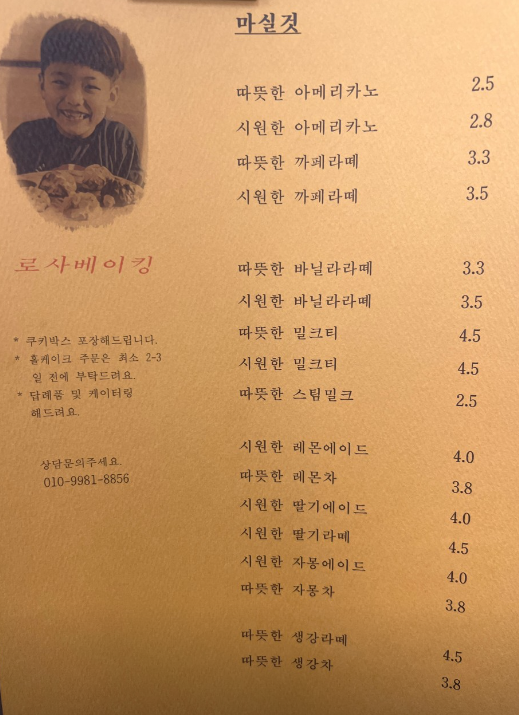 마실것
따뜻한 아메리카노 2.5
시원한 아메리카노 2.8
따뜻한 까페라떼 3.3
시원한 까페라떼 3.5
따뜻한 바닐라라떼 3.3
시원한 바닐라라떼 3.5
따뜻한 밀크티 4.5
시원한 밀크티 4.5
따뜻한 스팀밀크 2.5
시원한 레몬에이드 4.0
따뜻한 레몬차 3.8
시원한 딸기에이드 4.0
시원한 딸기라떼 4.5
시원한 자몽에이드 4.0
따뜻한 자몽차 3.8
따뜻한 생강라떼 4.5
따뜻한 생강차 3.8
로사베이킹
* 쿠키박스 포장해드립니다.
* 홀케이크 주문은 최소 2-3
일 전에 부탁드려요.
* 답례품 및 케이터링
해드려요.
상담문의주세요.
010-9981-8856